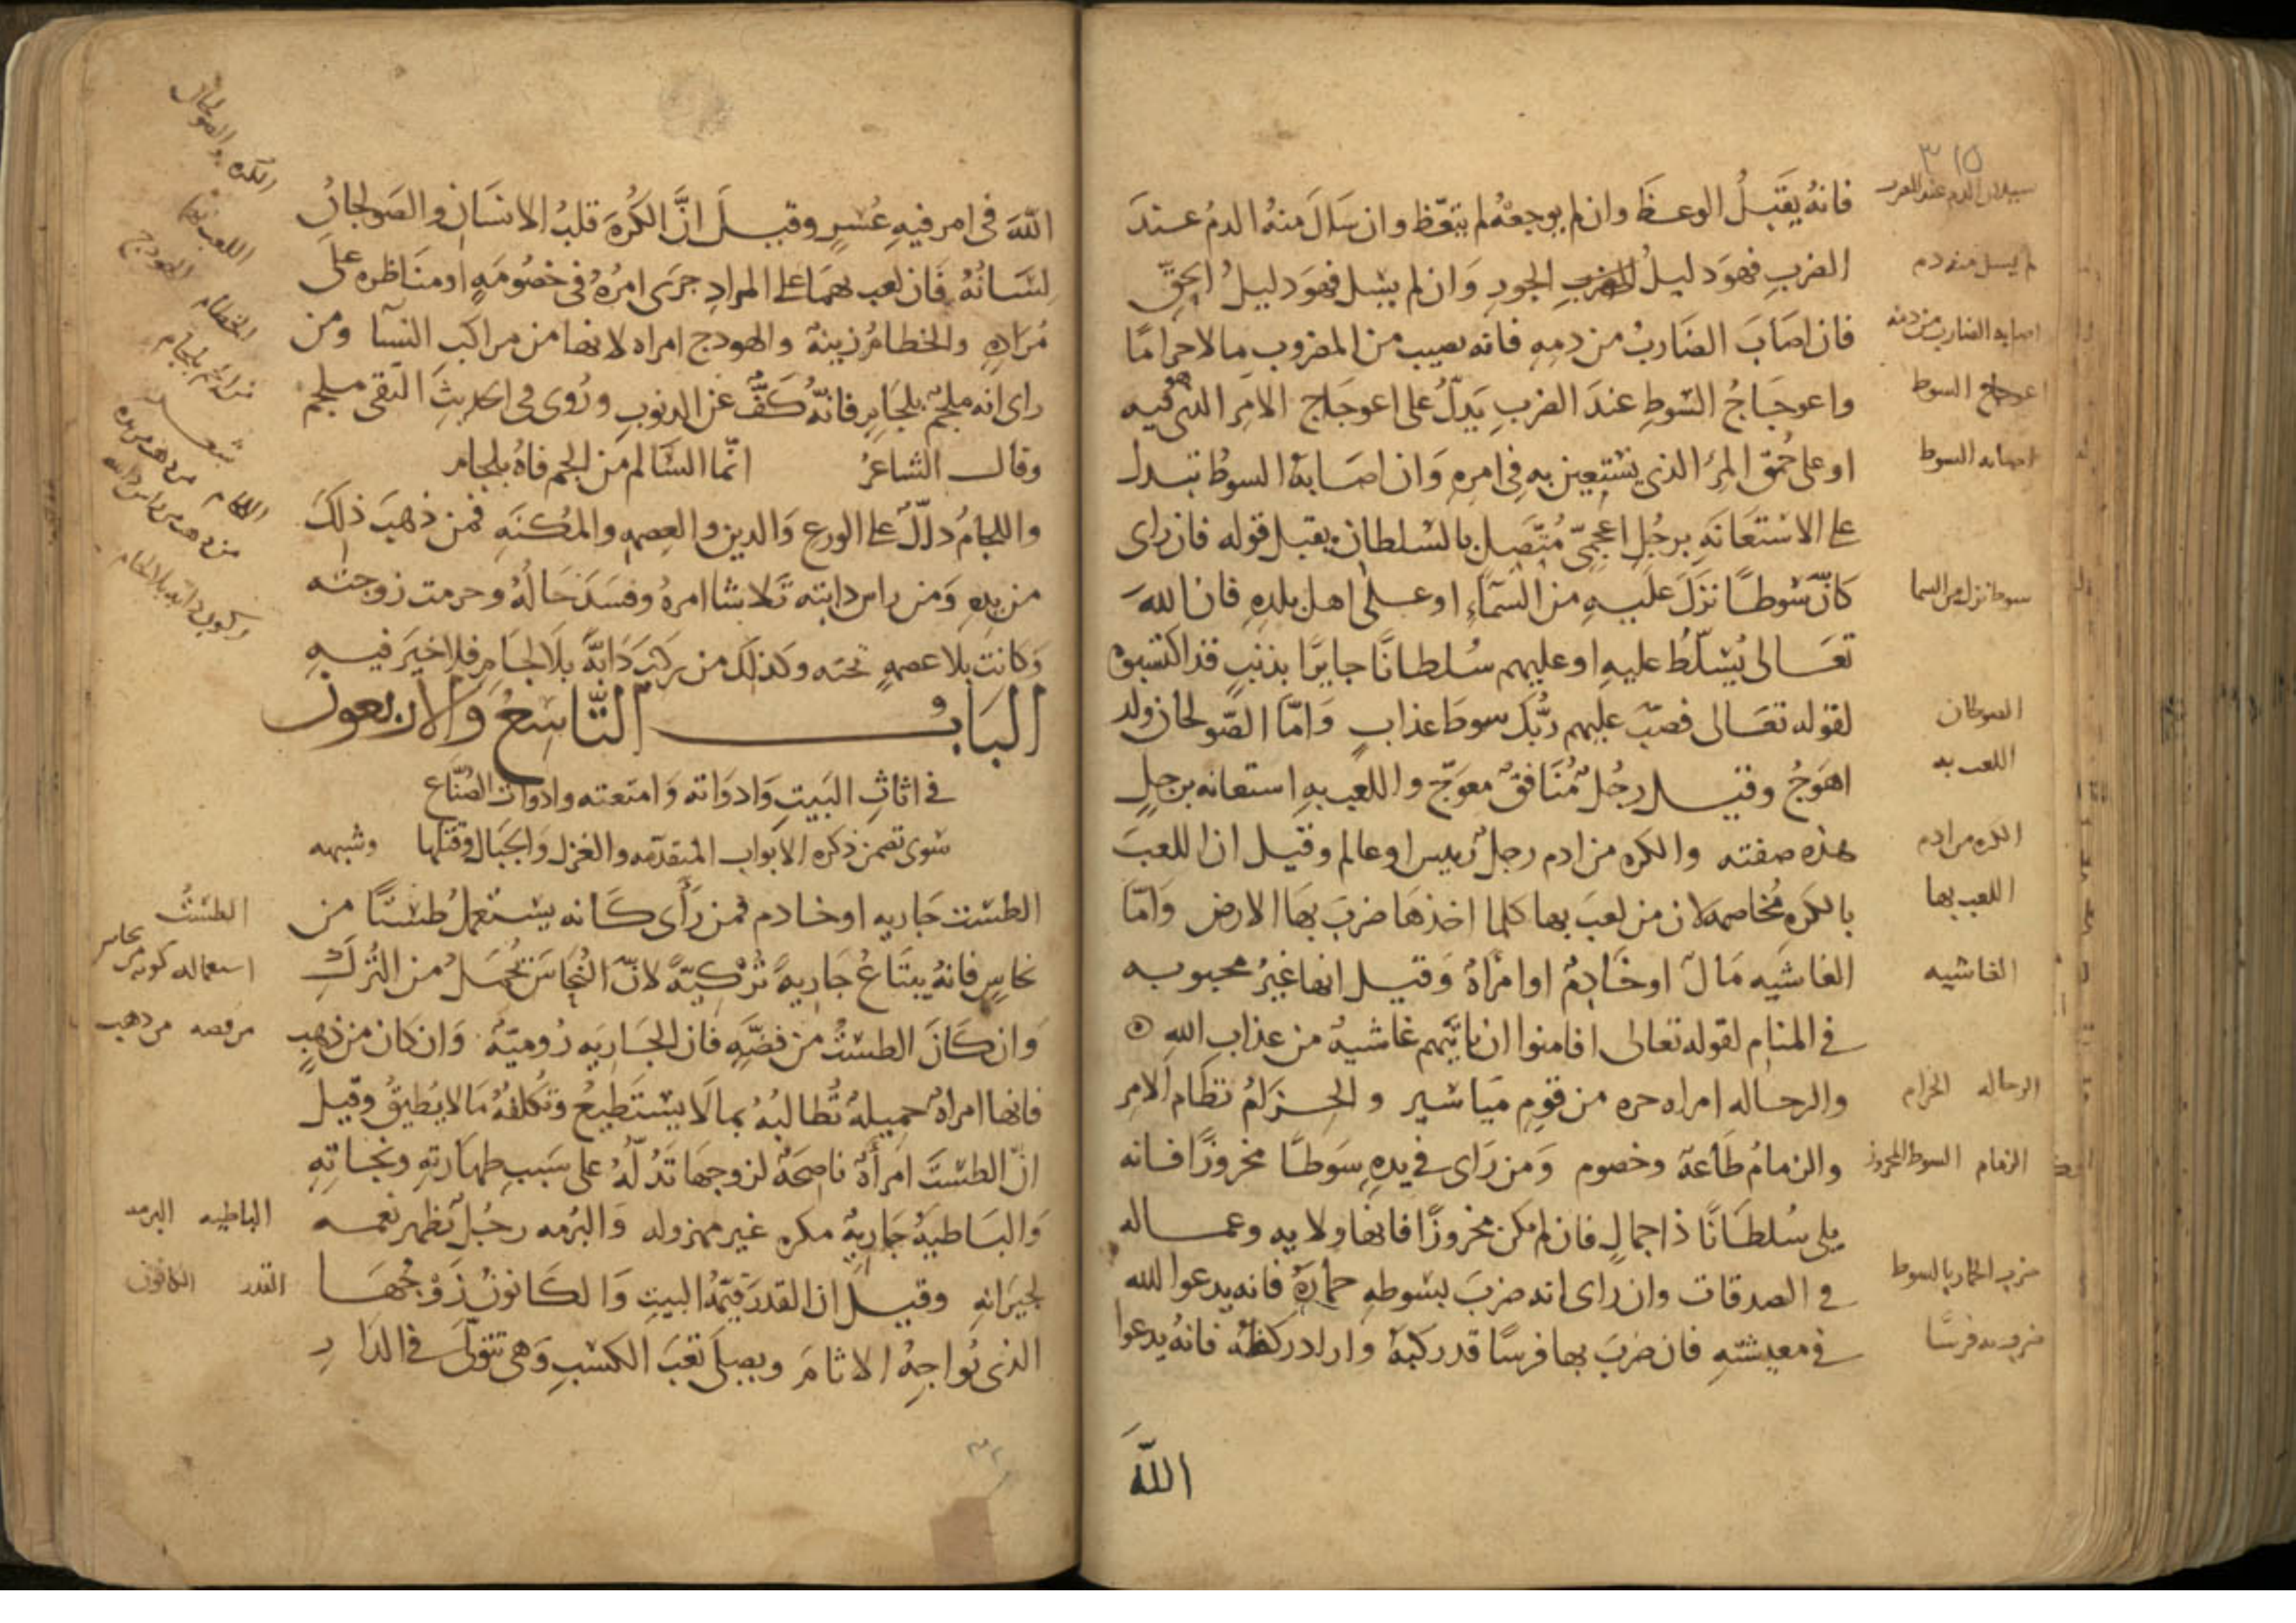 ٣١٥
فانهُ يقبلُ الوعظَ وان لم يوجعهُ لم يتعّظ وان سَالَ منهُ الدمُ عندَ
الضربِ فهوَ دليلُ الجورِ وَان لم يسل فهوَ دليلُ الحقِّ
فان اصَابَ الضَاربُ من دمِهِ فانه يصيب من المضروب مالا حرامًا
واعوجَاجُ السَّوطِ عندَ الضربِ يَدلُّ على اعوجَاج الامِر الذي هو فيه
او على حُمق المرُ الذي يستعين به في امره وَان اصَابهُ السوطُ تبدل
على الاستعَانَهِ برجُلٍ اعجميّ مُتّصِلٍ بالسلطان يقبل قوله فان راى
كانّ سَوطًا نزلَ عليهِ من السَماءِ او على اهل بلدِهِ فان اللهَ
تعَالى يُسلّطُ عليهِ او عليهم سُلطانًا جايرًا بذنبٍ قد اكتسبوه
لقوله تعَالى فصبّ عليهم ربُّكَ سوطَ عذابٍ وَامّا الصّولجان ولد
اهوَجُ وقيل رجُلٌ مُنَافقٌ معوَجّ واللعب بهِ استعانه برجلٍ
هذه صفته والكره من ادم رجلٌ رييس او عالم وقيل ان اللعبَ
بالكرهِ مُخاصمه لان من لعبَ بها كلما اخذهَا ضربَ بهَا الارض وَامّا
الغاشيَه مَالٌ او خَادمٌ او امرَاةٌ وَقيل انها غيرُ محبوبه
في المنام لقوله تعالى افامنوا ان تاتيَهم غاشيهٌ من عذاب الله
والرحاله امراه حره من قومٍ ميَاسير والحزامُ نظام الامر
والزمامُ طَاعة وخصوم وَمن رَاى في يدِهِ سَوطًا مخروزًا فانه
يلي سُلطَانًا ذا جمالٍ فان لم يكن مخروزًا فانها ولايه وعماله
في الصدقات وان راى انه ضربَ بسَوطهِ حمارهُ فانه يدعوا الله
في معيشتهِ فان ضربَ بها فرسًا قد ركبهُ واراد ركضهُ فانهُ يدعوا
اللهَ
سيلان الدم عند الضرب
لم يسل منه دم
اصابه الضارب من دمه
اعوجاج السوط
اصابه السوط
سوط نزل من السما
الصولجان
اللعب به
الكره من ادم
اللعب بها
الغاشيه
الرحاله الحزام
الزمام السوط المخروز
ضرب الحمار بالسوط
ضرب به فرسًا
اللهَ في امر فيهِ عُسرٍ وقيلَ انَّ الكُرةَ قلبُ الانسَان والصَولجانُ
لسَانُهُ فَان لعب بهمَا على المرادِ جرَى امرُهُ في خصُومَهٍ او منَاظره علَى
مُرَادِهِ والخطَامُ زينةٌ والهودج امراه لانها من مراكب النسا ومن
راى انه ملجمٌ بلجَامٍ فانّهُ كَفٌّ عن الذنوب ورُوى في الحديثَ التقى ملجم
وقال الشاعرُ انّما السَّالم من الجم فاهُ بلجام
واللجامُ دالٌّ على الورع وَالدين والعصمه والمُكنَهِ فمن ذهبَ ذلكَ
من يدِهِ وَمن راس دابته تَلاشا امرهُ وفسَدَ حَالهُ وحرمت زوجته
وَكانت بلا عصمهٍ تحته وكذلكَ من ركبَ دَابةً بلَا لجامٍ فلا خيَر فيهِ
البَابُ التَّاسِعُ وَالاربعون
في اثاثِ البَيتِ وَادوَاته وَامتعته وادوات الصُنّاع
سوى تضمن ذكره الابواب المتقدّمه والغزل وَالحبَال وفتلها وشبهه
الطست جَاريه او خادم فمن رَأى كَانه يستعملُ طستًا من
نحاسٍ فانهُ يبتَاعُ جَاريةً تُركيّةً لانّ النُحاسَ يُحمَلُ من التُركِ
وَان كَانَ الطستُ من فضّهِ فان الجَاريَه رُوميّةٌ وَان كان من ذهبٍ
فانها امراهٌ جميلهٌ تُطالبُهُ بما لَا يستَطيعُ وتُكلفهُ مَا لا يُطيقُ وقيل
انّ الطستَ امرأَةٌ ناصِحَةٌ لزوجهَا تَدُلّهُ على سَببِ طهَارَتِهِ ونجَاتِهِ
وَالبَاطيةُ جَاريةٌ مكره غير مهزوله وَالبُرمه رجُلٌ تظهر نعمه
لجيرَانهِ وقيل ان القدرَ قيّمةُ البيتِ وَالكَانونُ زَوجُهَا
الذي يُواجهُ الانامَ ويصلَى تعَبَ الكسبِ وَهي تتولّى في الدَارِ
الكره والصولجان
اللعب بهما
الخطام الهودج
من راى انه ملجم بلجام
شعر
اللجام من ذهب من يده
من ذهب من راس دابته
ركوب دابه بلا لجام
الطستُ
استعماله كونه من نحاس
من فضه من ذهب
الباطيه البرمه
القدر الكانون